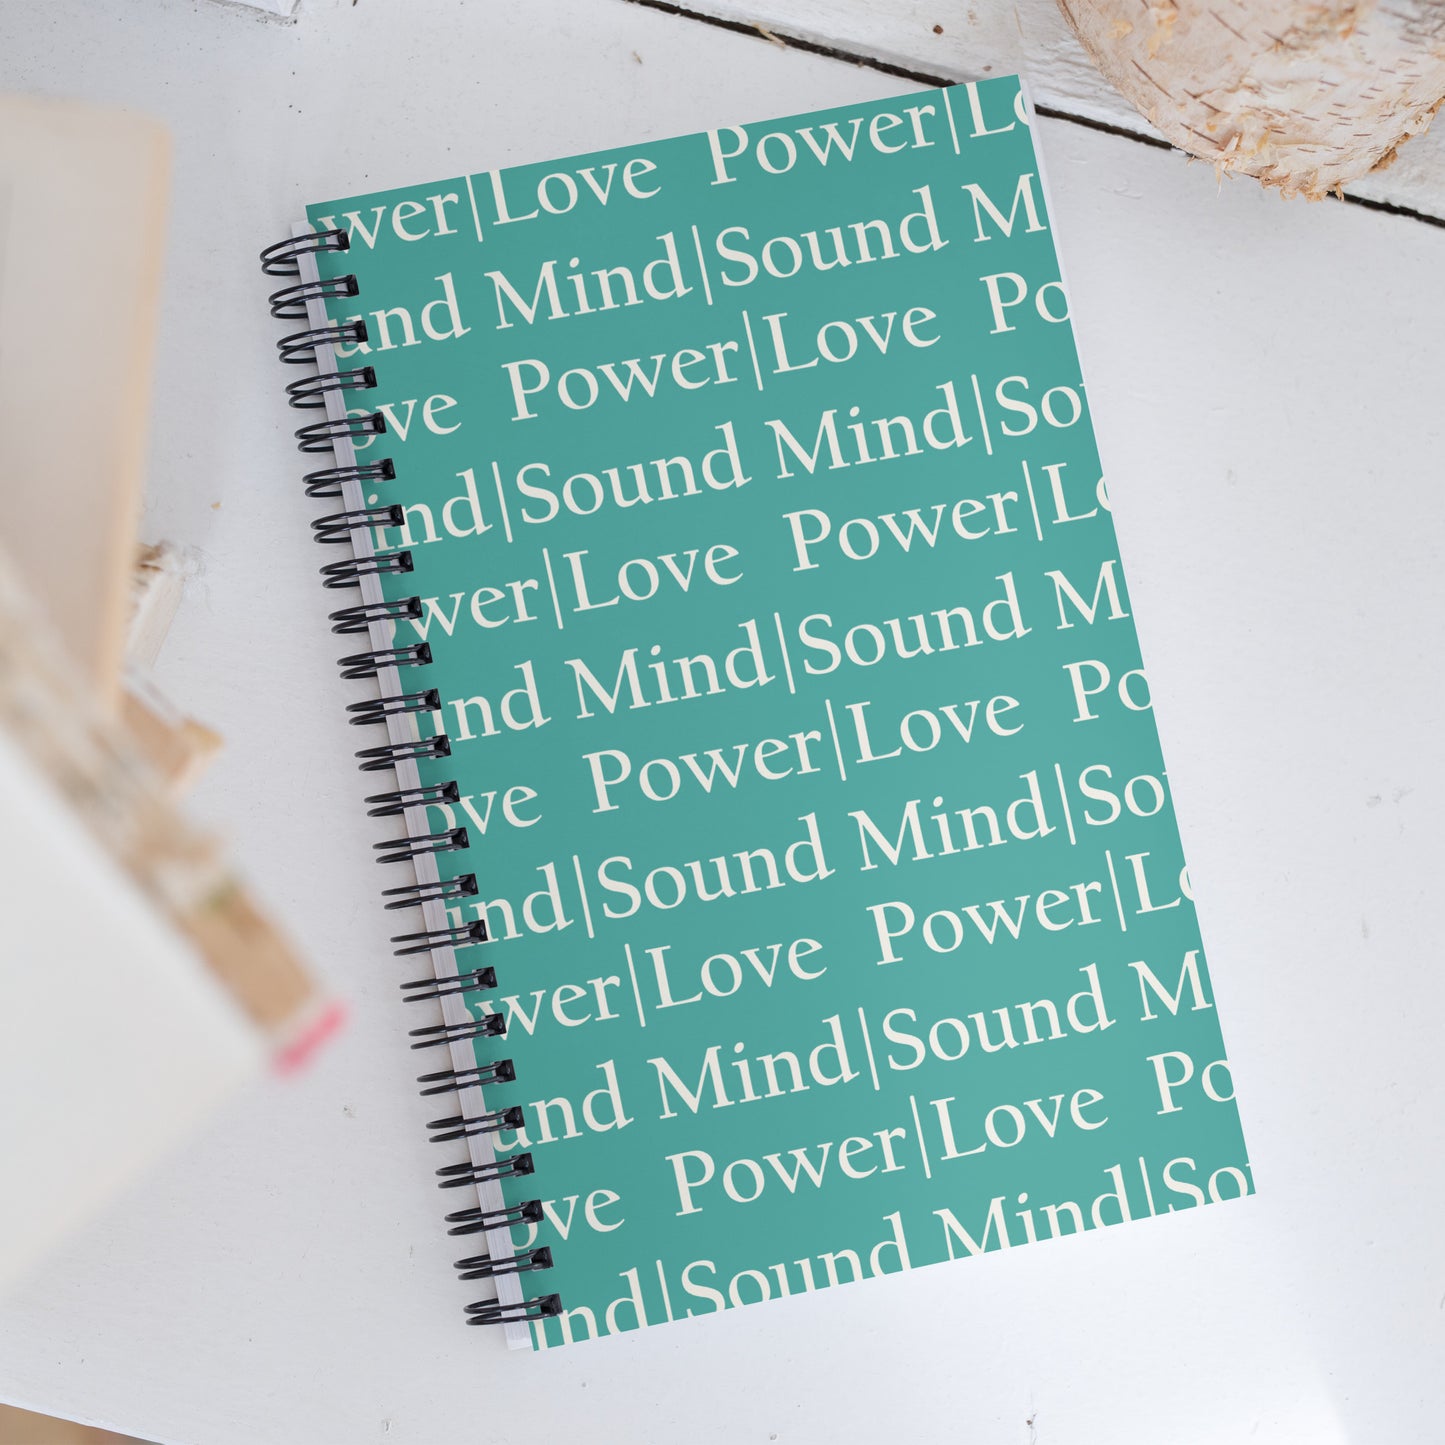 wer|Love Power|Lo
und Mind|Sound M
ove Power|Love Po
ind|Sound Mind|So
ower|Love Power|Lo
und Mind|Sound M
ove Power|Love Po
ind|Sound Mind|So
ower|Love Power|Lo
und Mind|Sound M
ove Power|Love Po
ind|Sound Mind|So